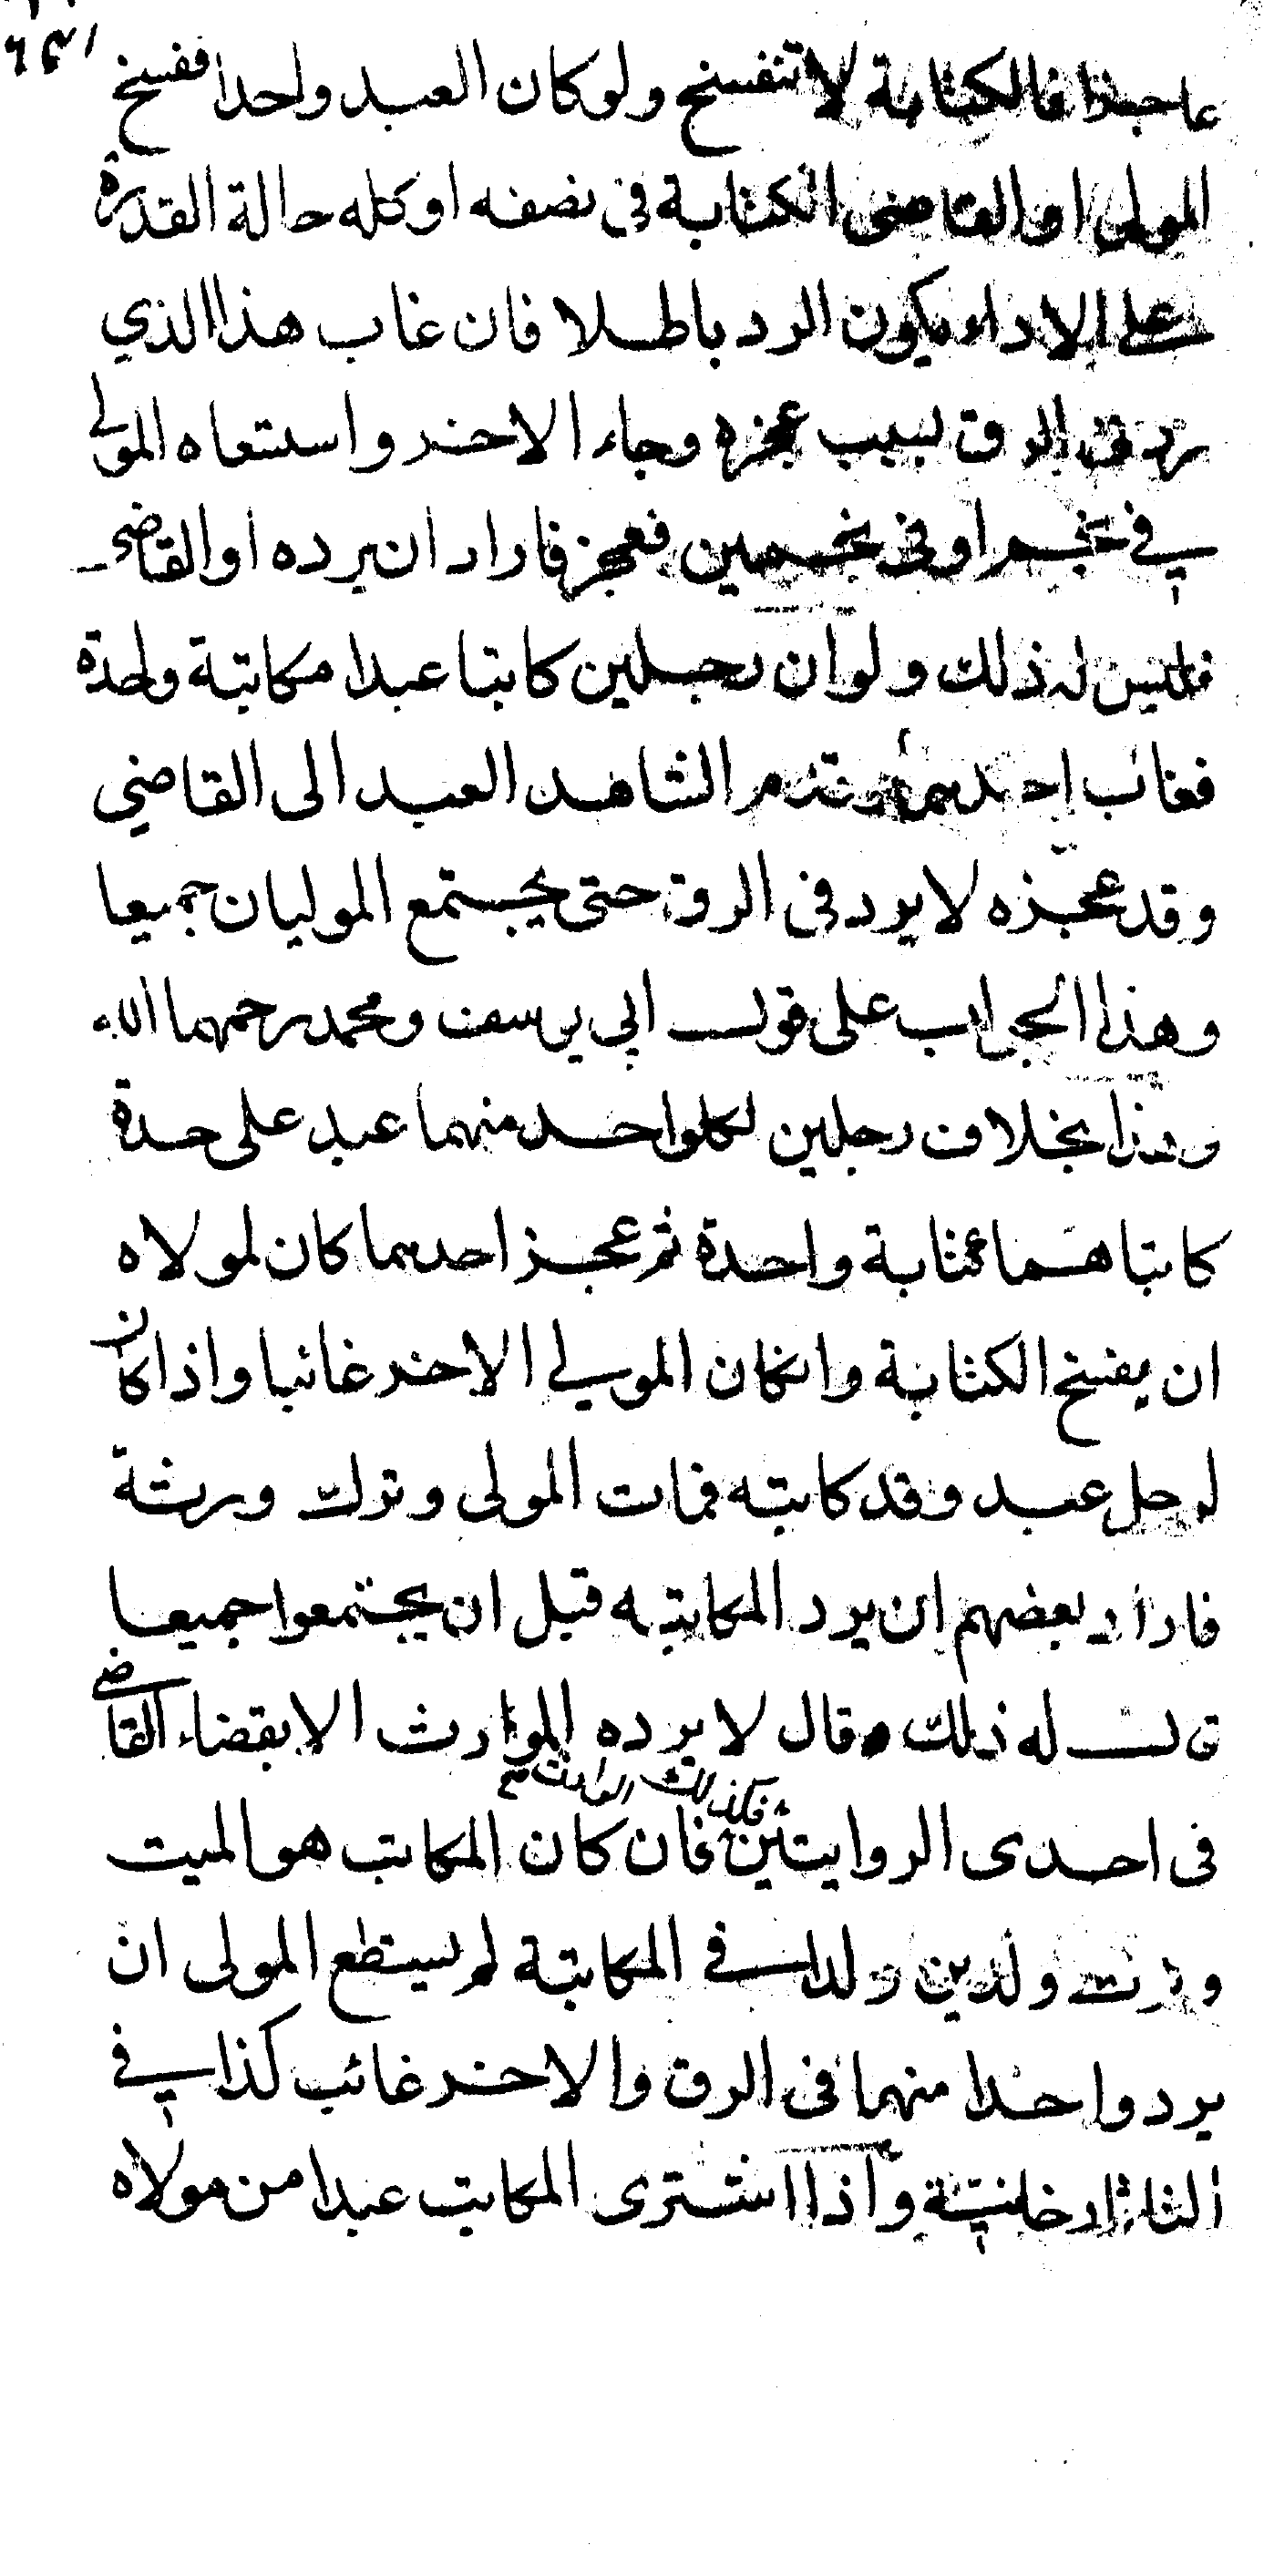 عاجزا فالكتابة لا تنفسخ ولو كان العبد واحدا ففسخ
المولى او القاضى الكتابة فى نصفه او كله حالة القدرة
على الاداء يكون الرد باطلا فان غاب هذا الذي
رد فى الرق بسبب عجزه وجاء الاخر واستسعاه المولى
في نجم او فى نجمين فعجز فاراد ان يرده او القاضى
فليس له ذلك ولو ان رجلين كاتبا عبدا مكاتبة واحدة
فغاب احدهما وقدم الشاهد العبد الى القاضي
وقد عجزه لا يرد فى الرق حتى يجتمع الموليان جميعا
وهذا الجواب على قول ابي يوسف ومحمد رحمهما الله
وهذا بخلاف رجلين لكل واحد منهما عبد على حدة
كاتباهما كتابة واحدة ثم عجز احدهما كان لمولاه
ان يفسخ الكتابة وانكان المولي الاخر غائبا واذا كان
لرجل عبد وقد كاتبه فمات المولى وترك ورثة
فاراد بعضهم ان يرد المكاتبه قبل ان يجتمعوا جميعا
له ذلك وقال لا يرده الوارث الا بقضاء القاضي
فكذلك الوارث صح
فى احدى الروايتين فان كان المكاتب هو الميت
وترك ولدين ولدا في المكاتبة لم يستطع المولى ان
يرد واحدا منهما فى الرق والاخر غائب كذا في
التاتارخانية واذا اشترى المكاتب عبدا من مولاه